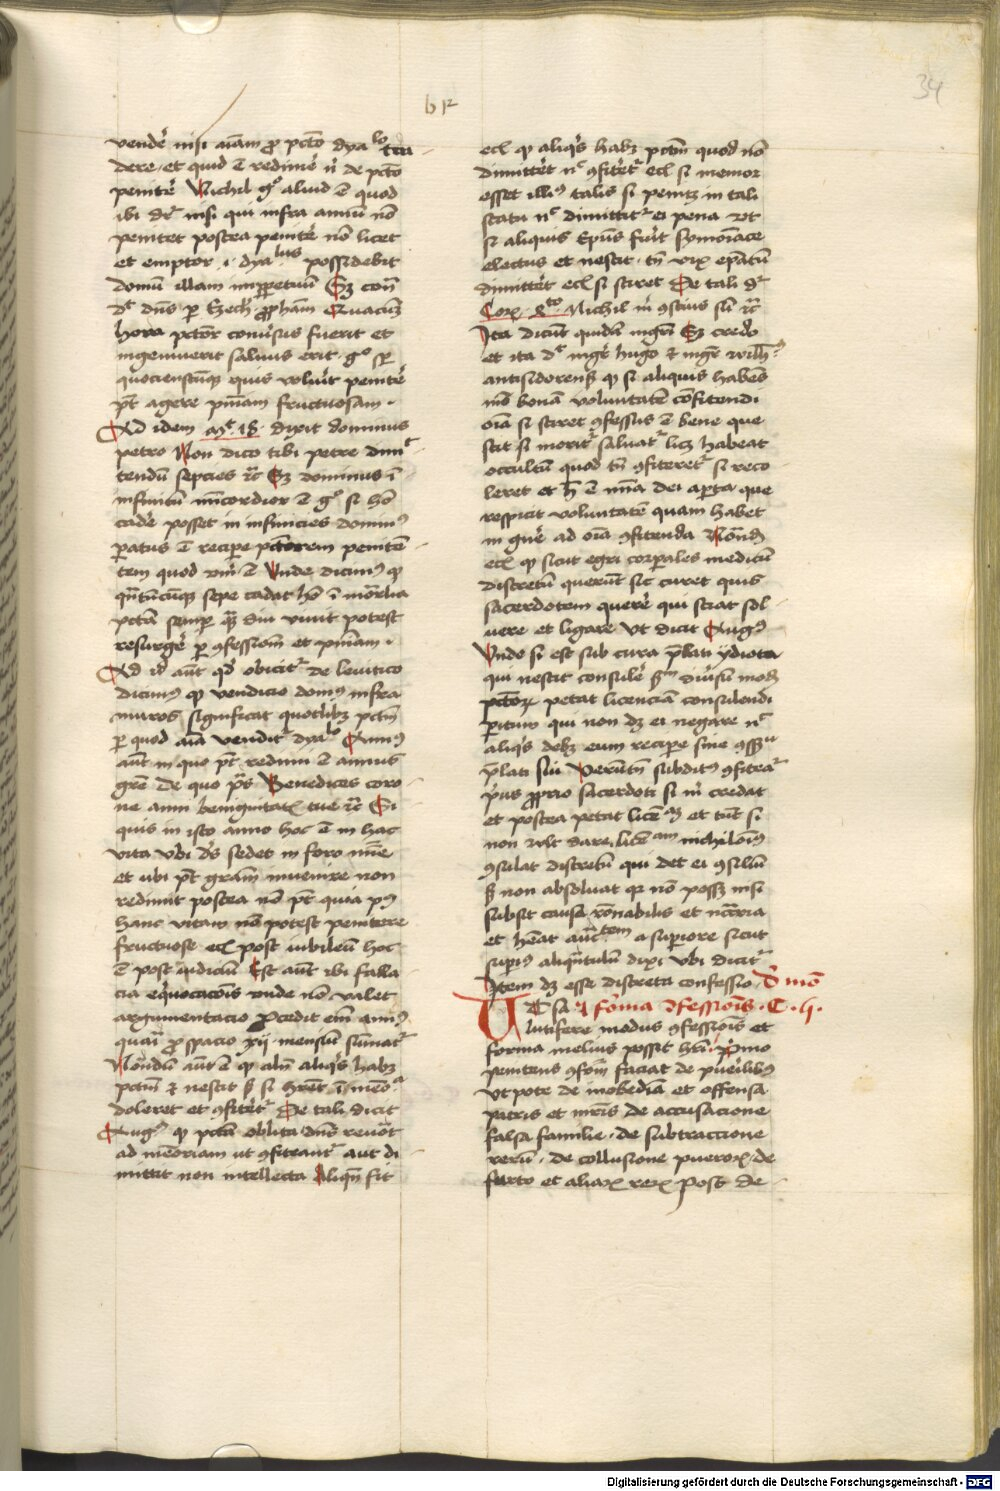 34
vendẽ nisi aĩam ꝓ pctõ dyalo tra
dere · et quid ẽ redimẽ ñ de pctõ
penitẽ Nichil gº aliud ẽ quod
ibi dr̃ nisi qui infra annũ nõ
penitet postea penitẽ nõ licet
et emptor · i · dyalus possidebit
domũ illam imꝑpetuũ
dns ꝑ Ezech ꝓpham
hora pctõr conuersus fuerit et
ingemuerit saluus erit · gº
quocienscũqꝫ quis voluit penitẽ
pt̃ agere pñiam fructuosam ·
Ad idem mͭ · 18 · dixit dominus
petro Non dico tibi petre dimit
tendũ sepcies ⁊c̃ Sꝫ dominus ĩ
infinitũ mĩcordior ẽ gº si hõ
cadẽ posset in infinicies dominꝰ
ꝑatus ẽ recipe pctõrem peniten
tem quod verũ ẽ Vnde dicimꝰ ꝙ
qñtũcũqꝫ sepe cadat hõ ĩ mortalia
pctã semper diu viuit potest
resurgẽ ꝑ ꝯfessionẽ et pñiam ·
Ad id aũt qd̃ obicitr̃ de leuitico
dicimꝰ ꝙ vendicio domꝰ infra
muros significat quotlibꝫ pctm̃
ꝑ quod aĩa venditr̃ dyalo Annꝰ
aũt in quo pt̃ redimi ẽ annus
grẽ De quo ps̃ Benedices coro
ne anni benignitatꝭ tue ⁊c̃ Si
quis in isto anno hoc ẽ in hac
vita vbi ds̃ sedet in foro mĩe
et ubi pt̃ grãm inuenire non
redimit postea nõ pt̃ quia pꝰ
hanc vitam nõ potest penitere
fructuose post iubileũ hoc
ẽ post iudiciũ Est aũt ibi falla
cia equocacõis vnde nõ valet
argumentacio Procedit em̃ annꝰ
ꝓ spacio xij · mensiũ sumatr̃
Notandũ aũt ẽ ꝙ aliqs̃ habꝫ
pctm̃ ⁊ nescit si hret̃ ĩ mẽoria
doleret et ꝯfiteretr̃ De tali dicit
Augꝰ ꝙ pctã oblita dns reuocat
ad mẽoriam ut ꝯfiteantr̃ aut di
mittit non intellecta Aliqñ fit
ecl ꝙ aliqs̃ habꝫ pctm̃ quod nõ
dimitteret nͨ ꝯfiteretr̃ ecl si memor
esset illiꝰ talis si penitꝫ in tali
statu nͨ dimittitr̃ ei pena vt
si aliquis Epũs fuit symoniace
electus et nescit · tñ epatũ
dimitteret ecl si sciret De tali dr̃
Cor · 4to · Nichil m̃ ꝯscius sũ ⁊c̃
Ita dicũt quidã mgrĩ Sꝫ credo
et ita dͭ mgr̃ hugo ⁊ mgr̃ wilhꝰ
antisidorensis ꝙ si aliquis habẽs
mõ bonã volũtatẽ cõfitendi
oĩa si sciret ꝯfessus ẽ bene que
scit si moritr̃ saluatr̃ licꝫ habeat
occultũ quod tñ ꝯfiteretr̃ si reco
leret et h̃ ẽ mĩa dei aperta que
respicit voluntatẽ quam habet
in gñe ad oĩa ꝯfitenda Notandũ
ecl ꝙ sicut egri corporales medicũ
discretũ querũt sic curet quis
sacerdotem querẽ qui sciat sol
uere et ligare Vt dicit Augꝰ
Vnde si est sub cura p̃lati ydiota
qui nescit consulẽ diuersũ modũ
pctõrꝫ petat licenciã consulendi
ꝑitum qui non dꝫ ei negare nͨ
aliqs̃ debꝫ eum recipe sine ꝯssu
p̃lati sui Verũtñ subditꝰ ꝯfiteatr̃
pꝰ ꝓprio sacerdoti si m̃ credat
et postea petat licẽciã et tũc si
non vult dare licẽciam nichilomiꝰ
ꝯsulat discretũ qui det ei ꝯsiliũ
non absoluat qr nõ possꝫ nisi
subsit causa rõnabilis et nccr̃ia
et heat auctem a superiore sicut
supiꝰ aliqñtulũ dixi vbi dicitr̃
Item dꝫ esse discreta confessio D mõ
⁊ forma ꝯfessionis · C · ij ·
Vt sa
lutifere modus ꝯfessionis et
forma melius possit hr̃i · p̃mo
penitens ꝯfoꝝ faciat de puerilibꝰ
vtpote de inobediã et offensa
patris et mr̃is de accusacione
falsa familie · de subtraccione
rerũ · de collusione puerorꝫ · de
furto et aliarꝫ rerꝫ Post de
Digitalisierung gefördert durch die Deutsche Forschungsgemeinschaft - DFG